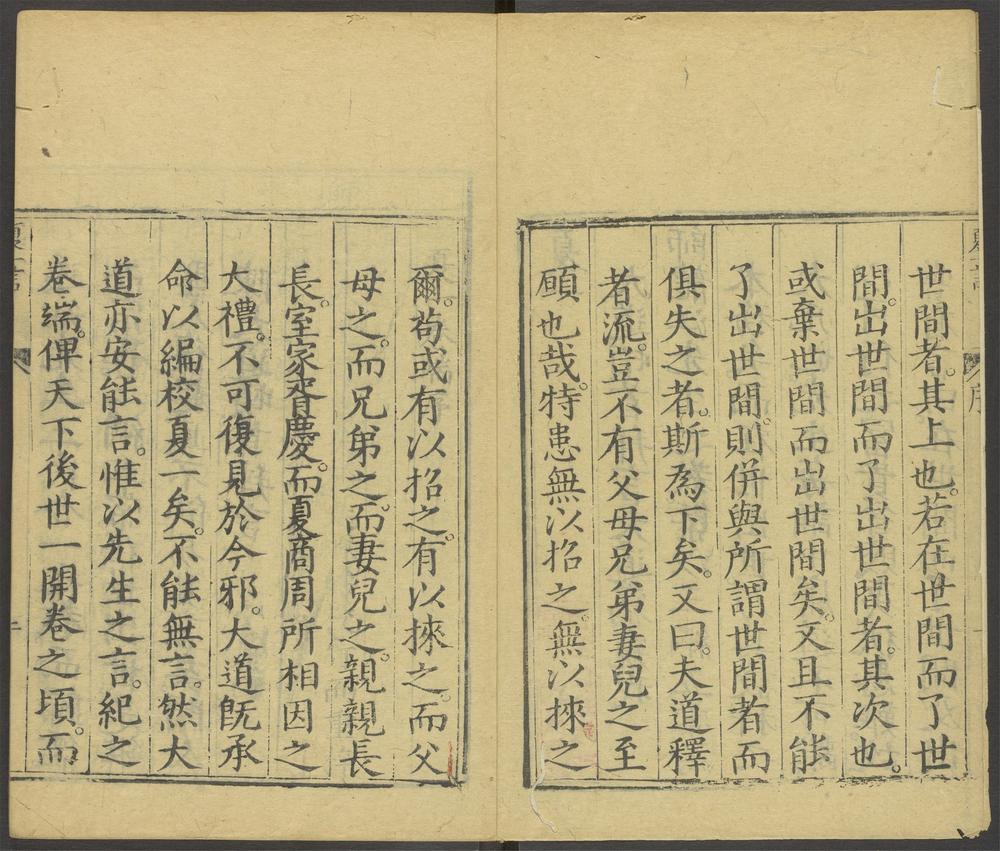 世間者。其上也。若在世間而了世
間。出世間而了出世間者。其次也。
或棄世間而出世間矣。又且不能
了出世間。則併與所謂世間者而
俱失之者。斯為下矣。又曰。夫道釋
者流。豈不有父母兄弟妻兒之至
願也哉。特患無以招之。無以𢯱之
爾。茍或有以招之。有以𢯱之。而父
母之。而兄弟之。而妻兒之。親親長
長。室家胥慶。而夏商周所相因之
大禮。不可復見於今邪。大道既承
命以編校夏一矣。不能無言。然大
道亦安能言。惟以先生之言。紀之
卷端。俾天下後世一開卷之頃。而
序
二